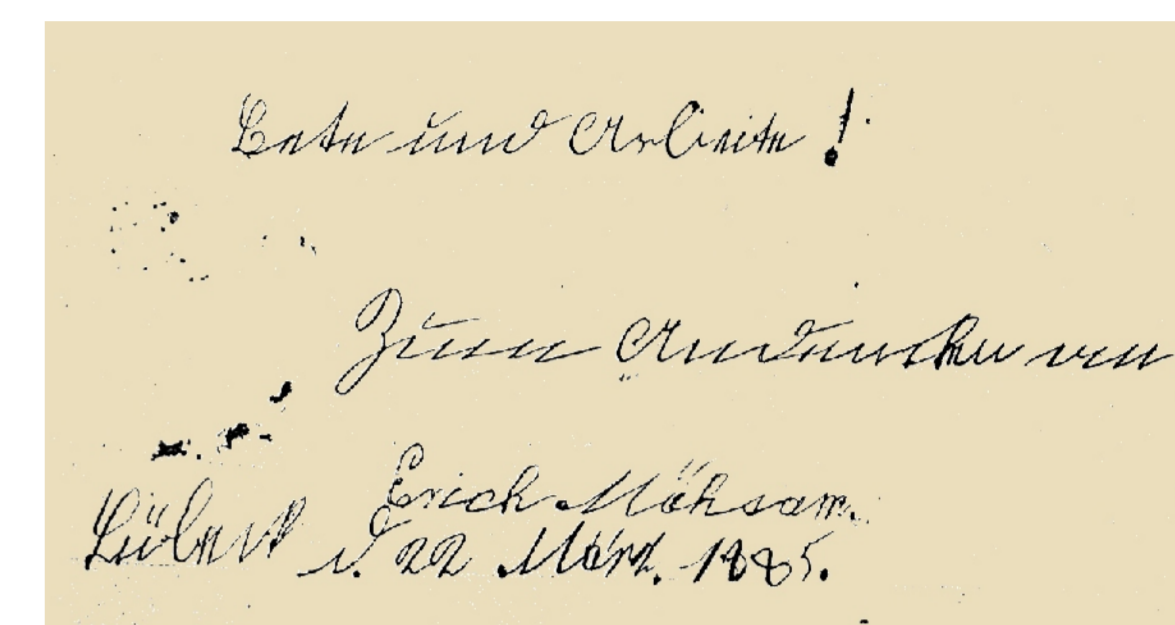 Bete und Arbeite!
Zum Andencken von
Erich Mühsam.
Lübeck d. 22 März. 1885.